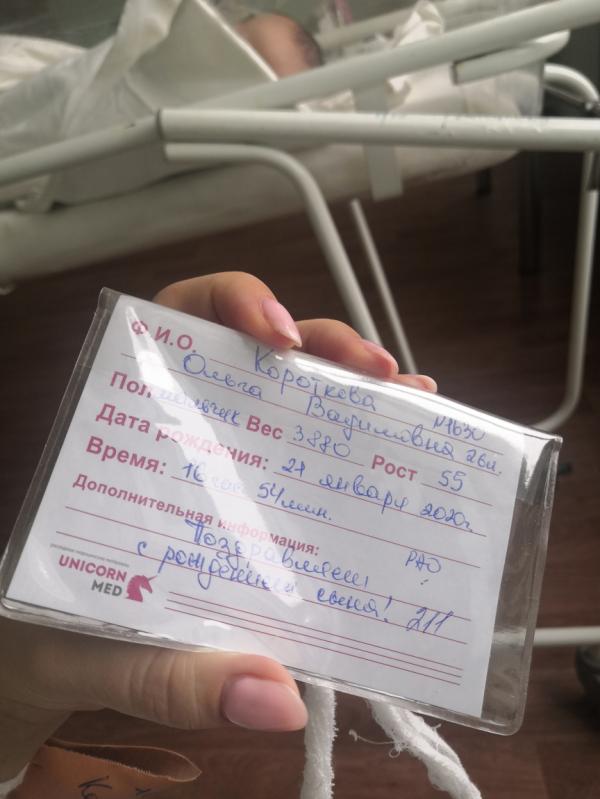 Ф.И.О. Короткова №1630
Ольга Вадимовна 26л.
Пол мальчик Вес 3880 Рост 55
Дата рождения: 21 января 2020г.
Время: 16 час 54 мин.
Дополнительная информация: РАО
Поздравляем
с рождением сына! 211
UNICORN
MED